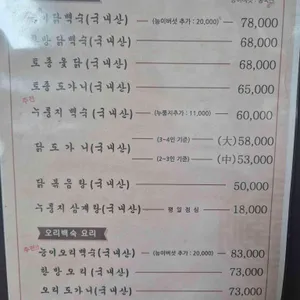 닭백숙(국내산) (능이버섯 추가 : 20,000) 78,000
한방 닭백수(국내산) 68,000
토종 닭(국내산) 68,000
토종 (국내산) 65,000
누룽지 백숙(국내산) (누룽지추가 : 11,000) 60,000
닭 도가니(국내산) (3~4인 기준) (大)58,000
(2~3인 기준) (中)53,000
닭 볶음탕(국내산) 50,000
누룽지 삼계탕(국내산) 평일점심 18,000
오리백숙 요리
능이오리백숙(국내산) (능이버섯 추가 : 20,000) 83,000
한방 오리(국내산) 73,000
오리 도가니(국내산) 73,000